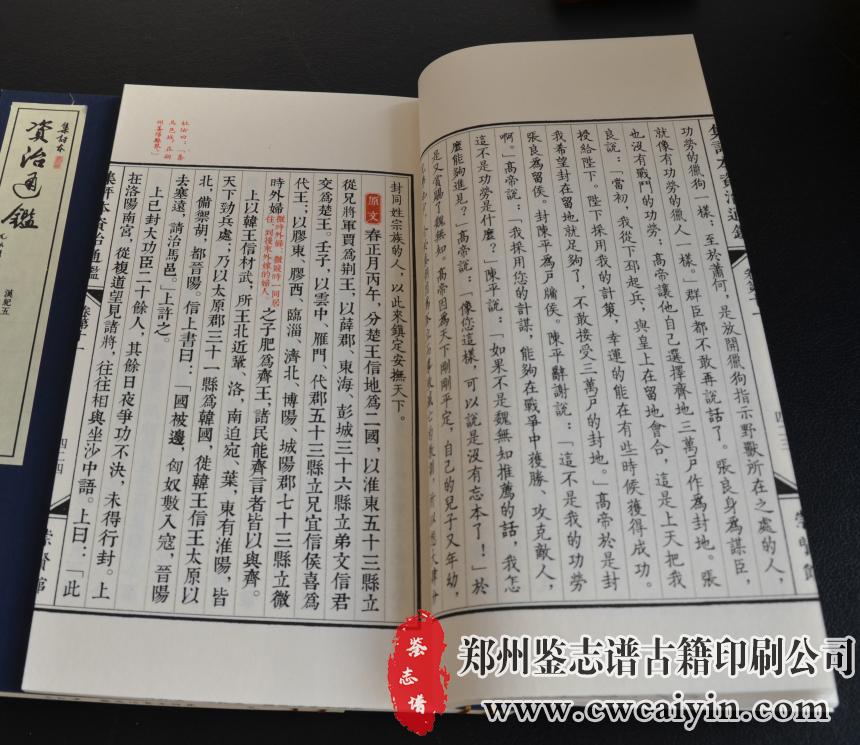 功勞的獵狗一樣；至於蕭何，是放開獵狗指示野獸所在之處的人，
就像有功勞的獵人一樣。」群臣都不敢再說話了。張良身爲謀臣，
也沒有戰鬥的功勞；高帝讓他自己選擇齊地三萬戶作爲封地。張
良說：「當初，我從下邳起兵，與皇上在留地會合，這是上天把我
授給陛下。陛下採用我的計策，幸運的能在有些時候獲得成功。
我希望封在留地就足夠了，不敢接受三萬戶的封地。」高帝於是封
張良爲留侯。封陳平爲戶牖侯。陳平辭謝說：「這不是我的功勞
啊。」高帝說：「我採用您的計謀，能夠在戰爭中獲勝、攻克敵人，
這不是功勞是什麼？」陳平說：「如果不是魏無知推薦的話，我怎
麼能夠進見？」高帝說：「像您這樣 可以說是沒有忘本了！」於
是又賞賜了魏無知。高帝因爲天下剛剛平定，自己的兒子又年幼，
封同姓宗族的人，以此來鎮定安撫天下。
原文 春正月丙午，分楚王信地爲二國，以淮東五十三縣立
從兄將軍賈爲荆王，以薛郡、東海、彭城三十六縣立弟文信君
交爲楚王。壬子，以雲中、雁門、代郡五十三縣立兄宜信侯喜爲
代王；以膠東、膠西、臨淄、濟北、博陽、城陽郡七十三縣立微
時外婦
之子肥爲齊王，諸民能齊言者皆以與齊。
上以韓王信材武，所王北近鞏、洛，南迫宛、葉，東有淮陽，皆
天下勁兵處；乃以太原郡三十一縣爲韓國，徙韓王信王太原以
北，備禦胡，都晉陽。信上書曰：「國被邊，匈奴數入寇，晉陽
去塞遠，請治馬邑。」上許之。
上已封大功臣二十餘人，其餘日夜爭功不決，未得行封。上
在洛陽南宮，從複道望見諸將，往往相與坐沙中語。上曰：「此
集評本資治通鑑
四二四
崇賢館
集評本
資治通鑑
漢紀五
鉴志谱
郑州鉴志谱古籍印刷公司
www.cwcaiyin.com